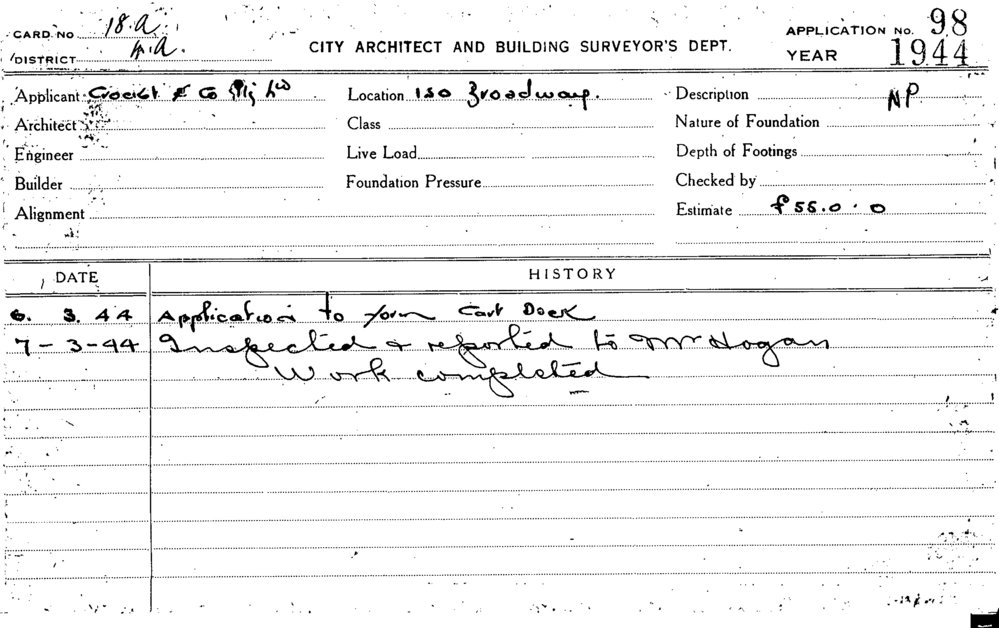 CARD No 18.A.
DISTRICT
CITY ARCHITECT AND BUILDING SURVEYOR'S DEPT.
APPLICATION No. 98
YEAR 1944
Applicant & Co Location 150 Broadway. Description NP
Architect Class Nature of Foundation
Engineer Live Load Depth of Footings
Builder Foundation Pressure Checked by
Alignment Estimate £55.0.0
DATE HISTORY
6. 3. 44 Application to form Cart Dock
7-3-44 Inspected & reported to Mr Hogan
Work completed